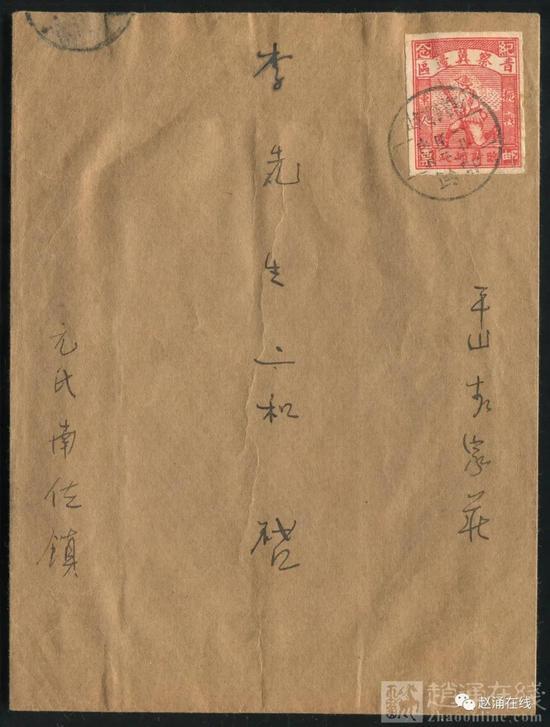 紀念
晉察冀邊區
抗戰
軍人
平山 家莊
李先生 和 啓
元氏南佐鎮
趙涌在线
Zhaoonline.com
赵涌在线